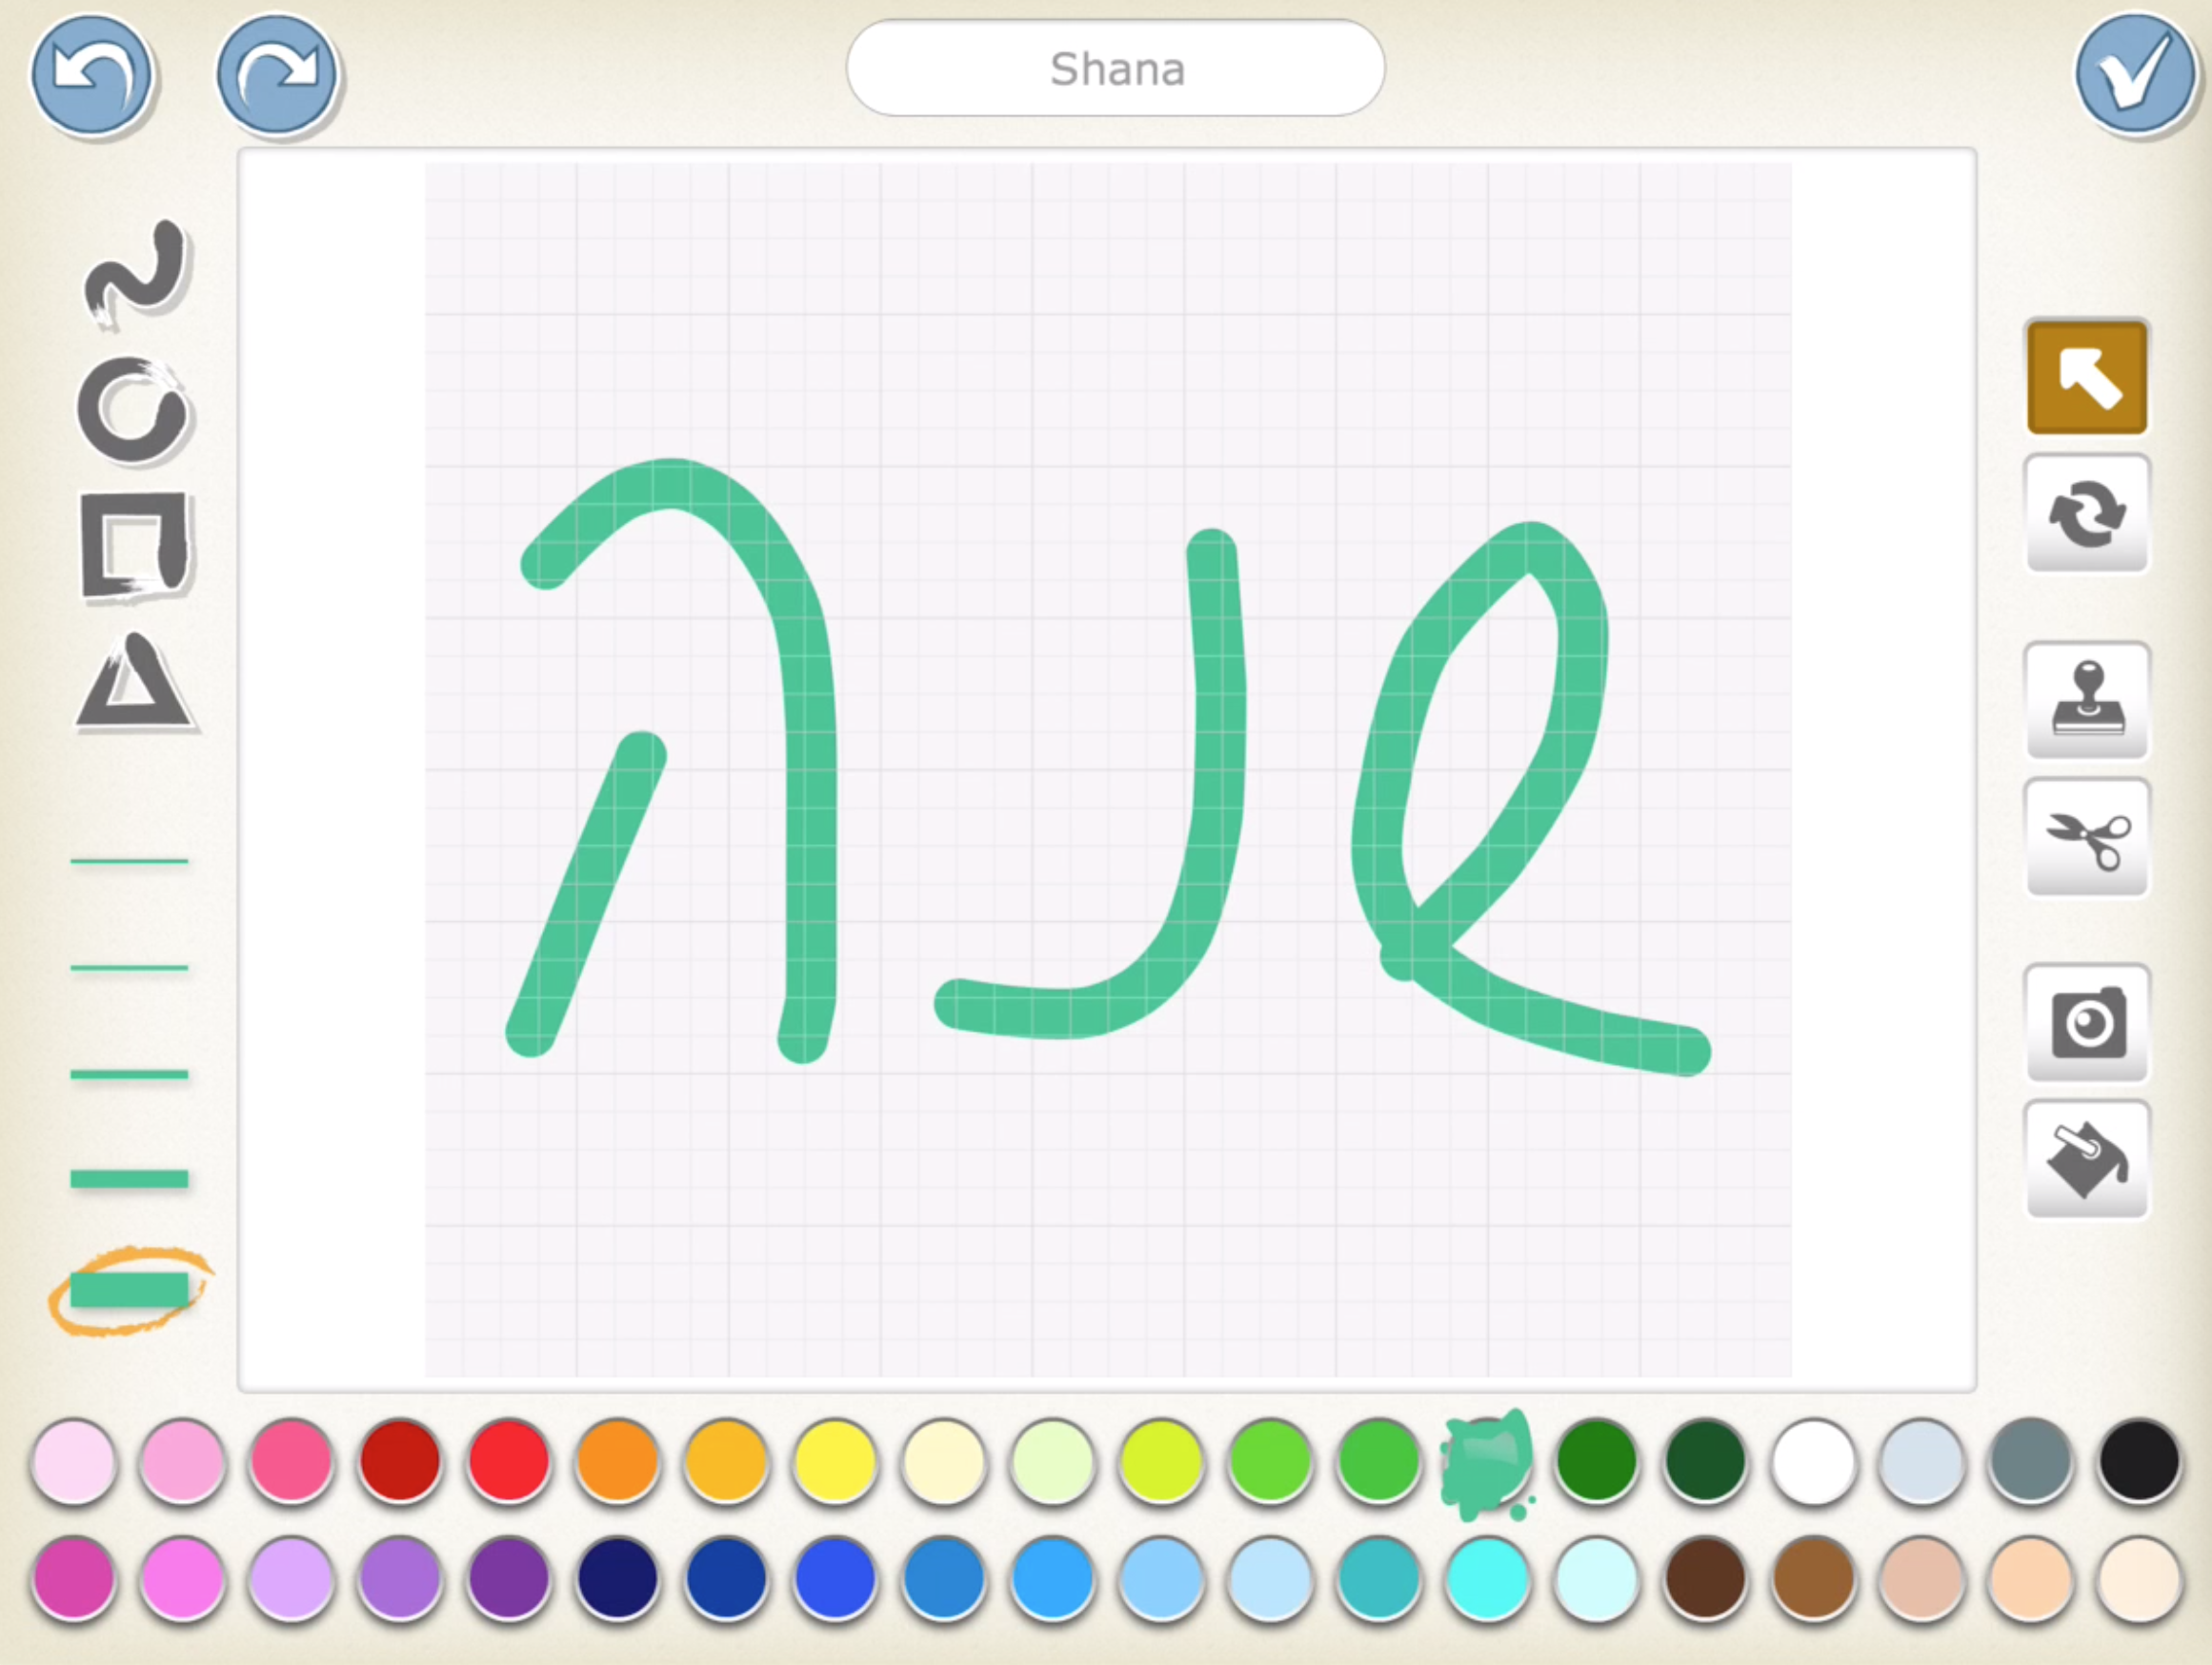 Shana
שנה